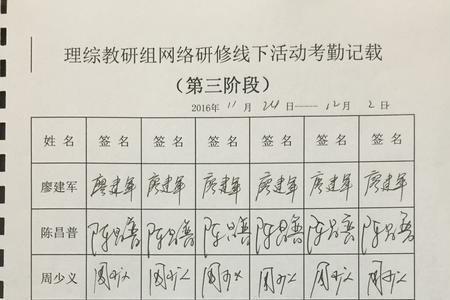 理综教研组网络研修线下活动考勤记载
（第三阶段）
2016年 11 月 24 日——12月 2 日
姓 名 签 名 签 名 签 名 签 名 签 名 签 名
廖建军 廖建军 廖建军 廖建军 廖建军 廖建军 廖建军
陈昌普 陈昌普 陈昌普 陈昌普 陈昌普 陈昌普 陈昌普
周少义 周少义 周少义 周少义 周少义 周少义 周少义